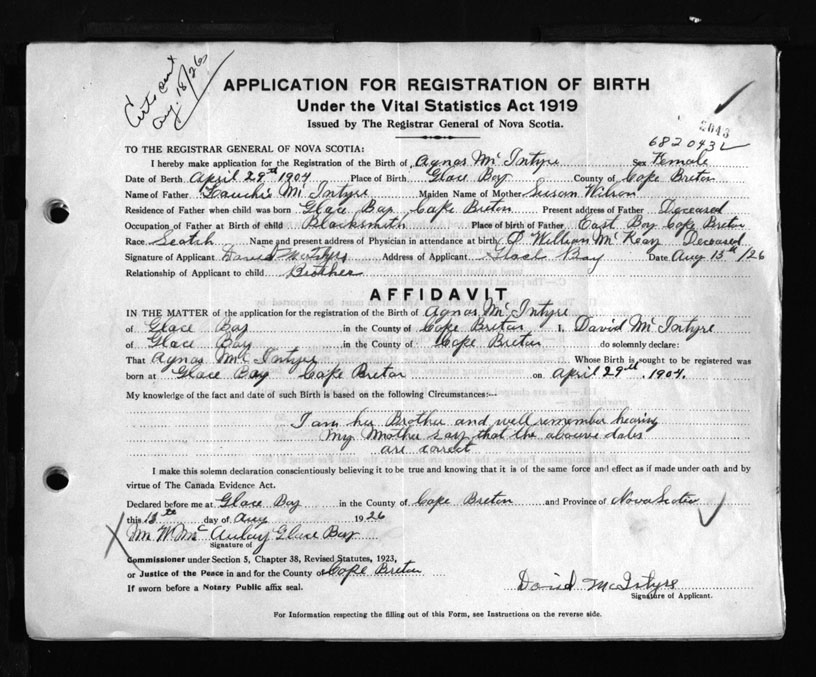 Aug. 18/26
APPLICATION FOR REGISTRATION OF BIRTH
Under the Vital Statistics Act 1919
Issued by The Registrar General of Nova Scotia.
2043
682043
TO THE REGISTRAR GENERAL OF NOVA SCOTIA:
I hereby make application for the Registration of the Birth of Agnas Mc Intyre Sex Female
Date of Berth April 29th 1904 Place of Birth Glace Bay County of Cape Breton
Name of Father Mc Intyre Maiden Name of Mother Susan Wilson
Residence of Father when child was born Glace Bay Cape Breton Present address of Father Deceased
Occupation of Father at Birth of child Blacksmith Place of birth of Father East Bay Cape Breton
Race Scotch Name and present address of Physician in attendance at birth William Mc Kay Deceased
Signature of Applicant David McIntyre Address of Applicant Glace Bay Date Aug 13th /26
Relationship of Applicant to child Brother
AFFIDAVIT
IN THE MATTER of the application for the registration of the Birth of Agnas Mc Intyre
of Glace Bay in the County of Cape Breton I, David Mc Intyre
of Glace Bay in the County of Cape Breton do solemnly declare:
That Agnas Mc Intyre Whose Birth is sought to be registered was
born at Glace Bay Cape Breton on April 29th, 1904.
My knowledge of the fact and date of such Birth is based on the following Circumstances:—
I am her Brother and well remember hearing
my Mother say that the above dates
are correct
I make this solemn declaration conscientiously believing it to be true and knowing that it is of the same force and effect as if made under oath and by
virtue of The Canada Evidence Act.
Declared before me at Glace Bay in the County of Cape Breton and Province of Nova Scotia
this 13th day of Aug 1926
Mc Aulay Glace Bay
Signature of
Commissioner under Section 5, Chapter 38, Revised Statutes, 1923,
or Justice of the Peace in and for the County of Cape Breton
If sworn before a Notary Public affix seal.
David McIntyre
Signature of Applicant.
For Information respecting the filling out of this Form, see Instructions on the reverse side.